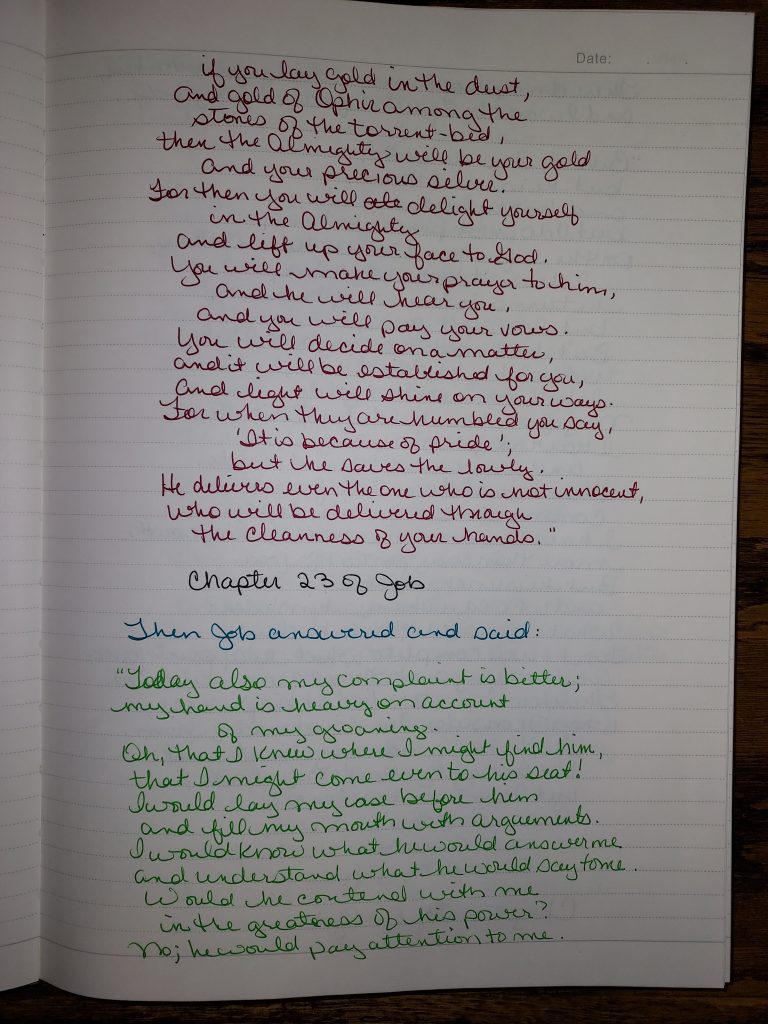 Date:
if you lay gold in the dust,
and gold of Ophir among the
stones of the torrent-bed,
then the Almighty will be your gold
and your precious silver.
For then you will delight yourself
in the Almighty
and lift up your face to God.
You will make your prayer to him,
and he will hear you,
and you will pay your vows.
You will decide on a matter,
and it will be established for you,
and light will shine on your ways.
For when they are humbled you say,
'It is because of pride';
but he saves the lowly.
He delivers even the one who is not innocent,
who will be delivered through
the cleanness of your hands."
Chapter 23 of Job
Then Job answered and said:
"Today also my complaint is bitter;
my hand is heavy on account
of my groaning.
Oh, that I knew where I might find him,
that I might come even to his seat!
I would lay my case before him
and fill my mouth with arguements.
I would know what he would answer me
and understand what he would say to me.
Would he contend with me
in the greatness of his power?
No; he would pay attention to me.